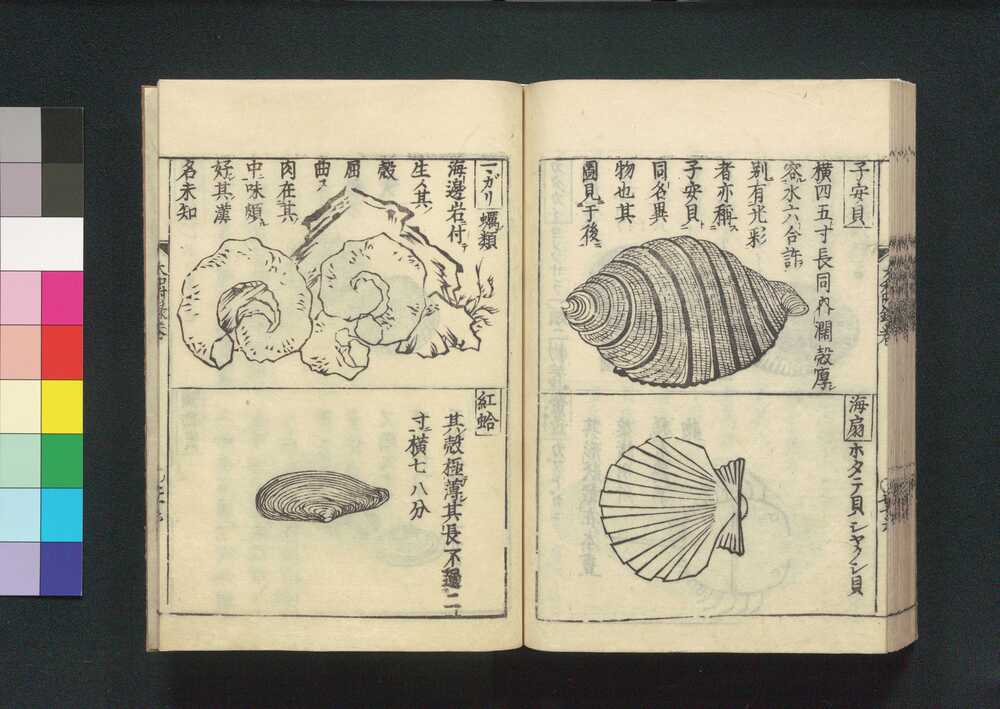 子安貝
横四五寸長同内濶殻厚
容水六合許
別有光彩
者亦稱
子安貝
同名異
物也其
圖見于後
海扇 ホタテ貝 シヤクシ貝
ガリ 蠣類
海邊岩付テ
生ス其
殻
屈
曲ス
肉在其
中味頗
好其漢
名未知
紅蛤
其殻極薄其長不過二
寸横七八分